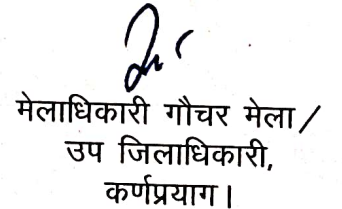 मेलाधिकारी गौचर मेला/
उप जिलाधिकारी,
कर्णप्रयाग।